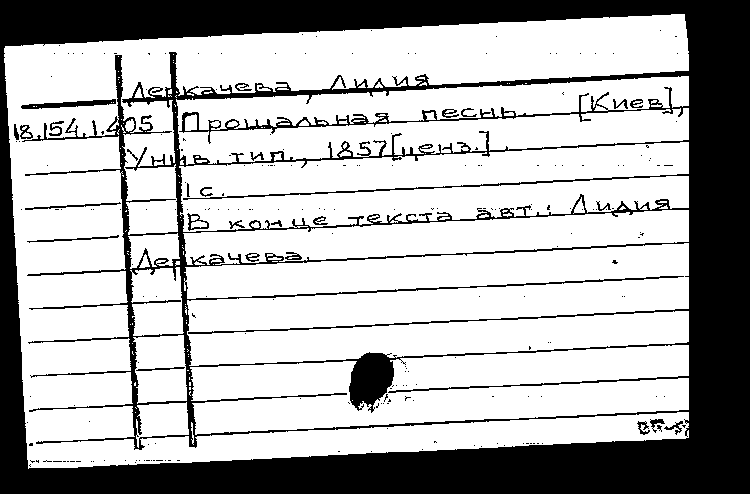 Деркачева, Лидия
18.154.1.405 Прощальная песнь. [Киев],
Унив. тип., 1857[ценз.].
1 с.
В конце текста авт.: Лидия
Деркачева.